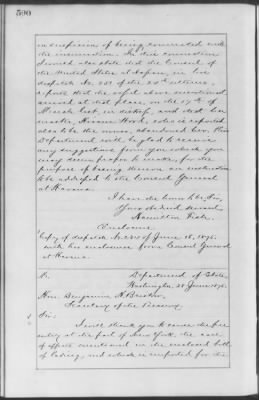 580
on suspicion of being connected with
the insurrection. In this connection
I would also state that the Consul of
the United States at Aspinwall, in his
despatch No. 231 of the 28th ultimo,
reports that the vessel above mentioned
arrived at that place, on the 17th of
March last, in ballast, and that her
master, Hiram Work, who is reported
also to be the owner, abandoned her. This
Department will be glad to receive
any suggestions from you which you
may deem proper to make, for the
purpose of being drawn as instruction
to be addressed to the Consul General
at Havana.
I have the honor to be, Sir,
Your obedient servant,
Hamilton Fish.
Enclosure
Copy of despatch No. of June 18, 1875,
with its enclosures from Consul General
at Havana
Department of State,
Washington, 28 June 1875.
Hon. Benjamin H. Bristow,
Secretary of the Treasury.
Sir:
I will thank you to cause the free
entry at the port of New York, the case
of effects mentioned in the enclosed bill
of lading, and which is imported for the